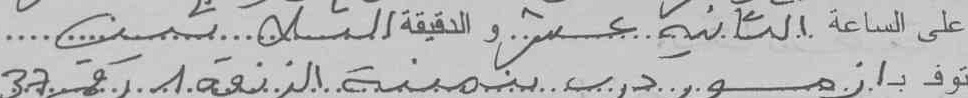 على الساعة الثانية عشر و الدقيقة الثلاثين
توفي بـ ازمور درب بنمينة الزنقة 1 رقم 37